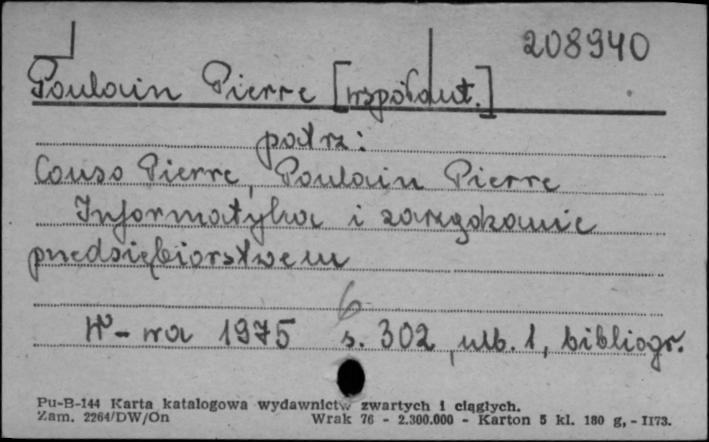 208940
Poulain Pierre [współaut.]
patrz:
Couso Pierre, Poulain Pierre
Informatyka i zarządzanie
przedsiębiorstwem
6
W-wa 1975 s. 302, nlb. 1, bibliogr.
Pu-B-144 Karta katalogowa wydawnictw zwartych i ciągłych.
Zam. 2264/DW/On Wrak 76 - 2.300.000 - Karton 5 kl. 180 g, - 1173.